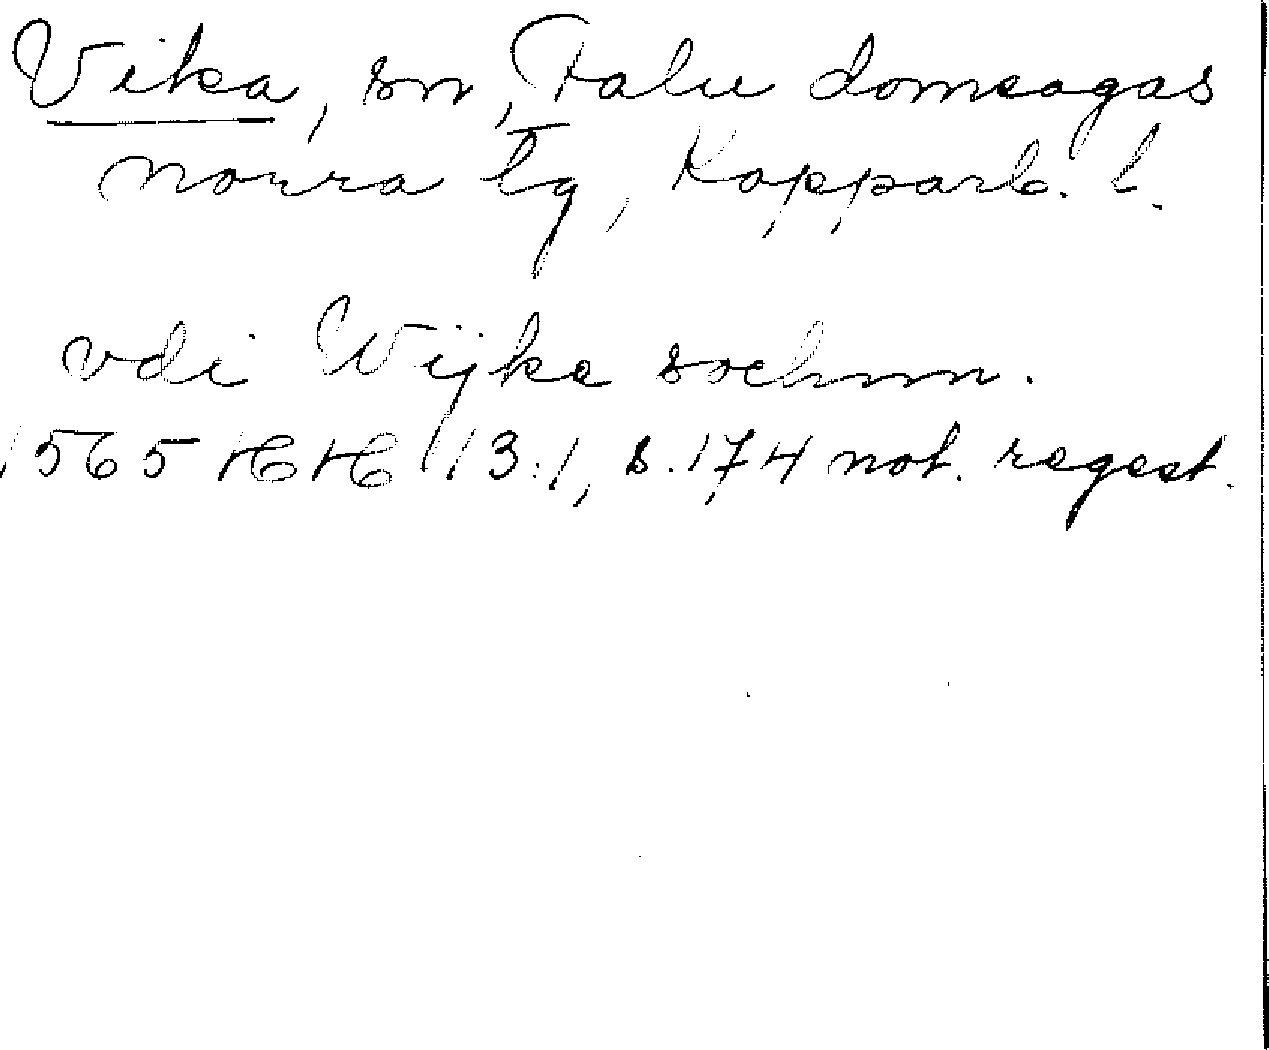 Vika, sn, Falu domsagas
norra tg, Kopparb. l.
vdi Wijka sochnn.
1565 HH 13:1, s. 174 not. regest.